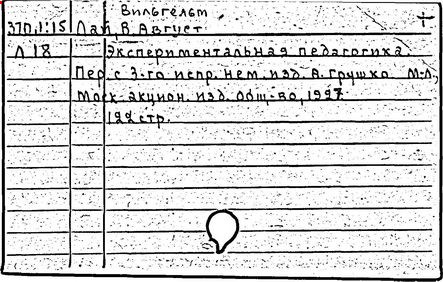 Вильгельм
370.1:15 Лай, В. Август +
Л 18 Экспериментальная педагогика.
Пер. с 3-го испр. нем. изд. А. Грушко М-Л,
Моск. акцион. изд. общ-во, 1927.
122 стр.